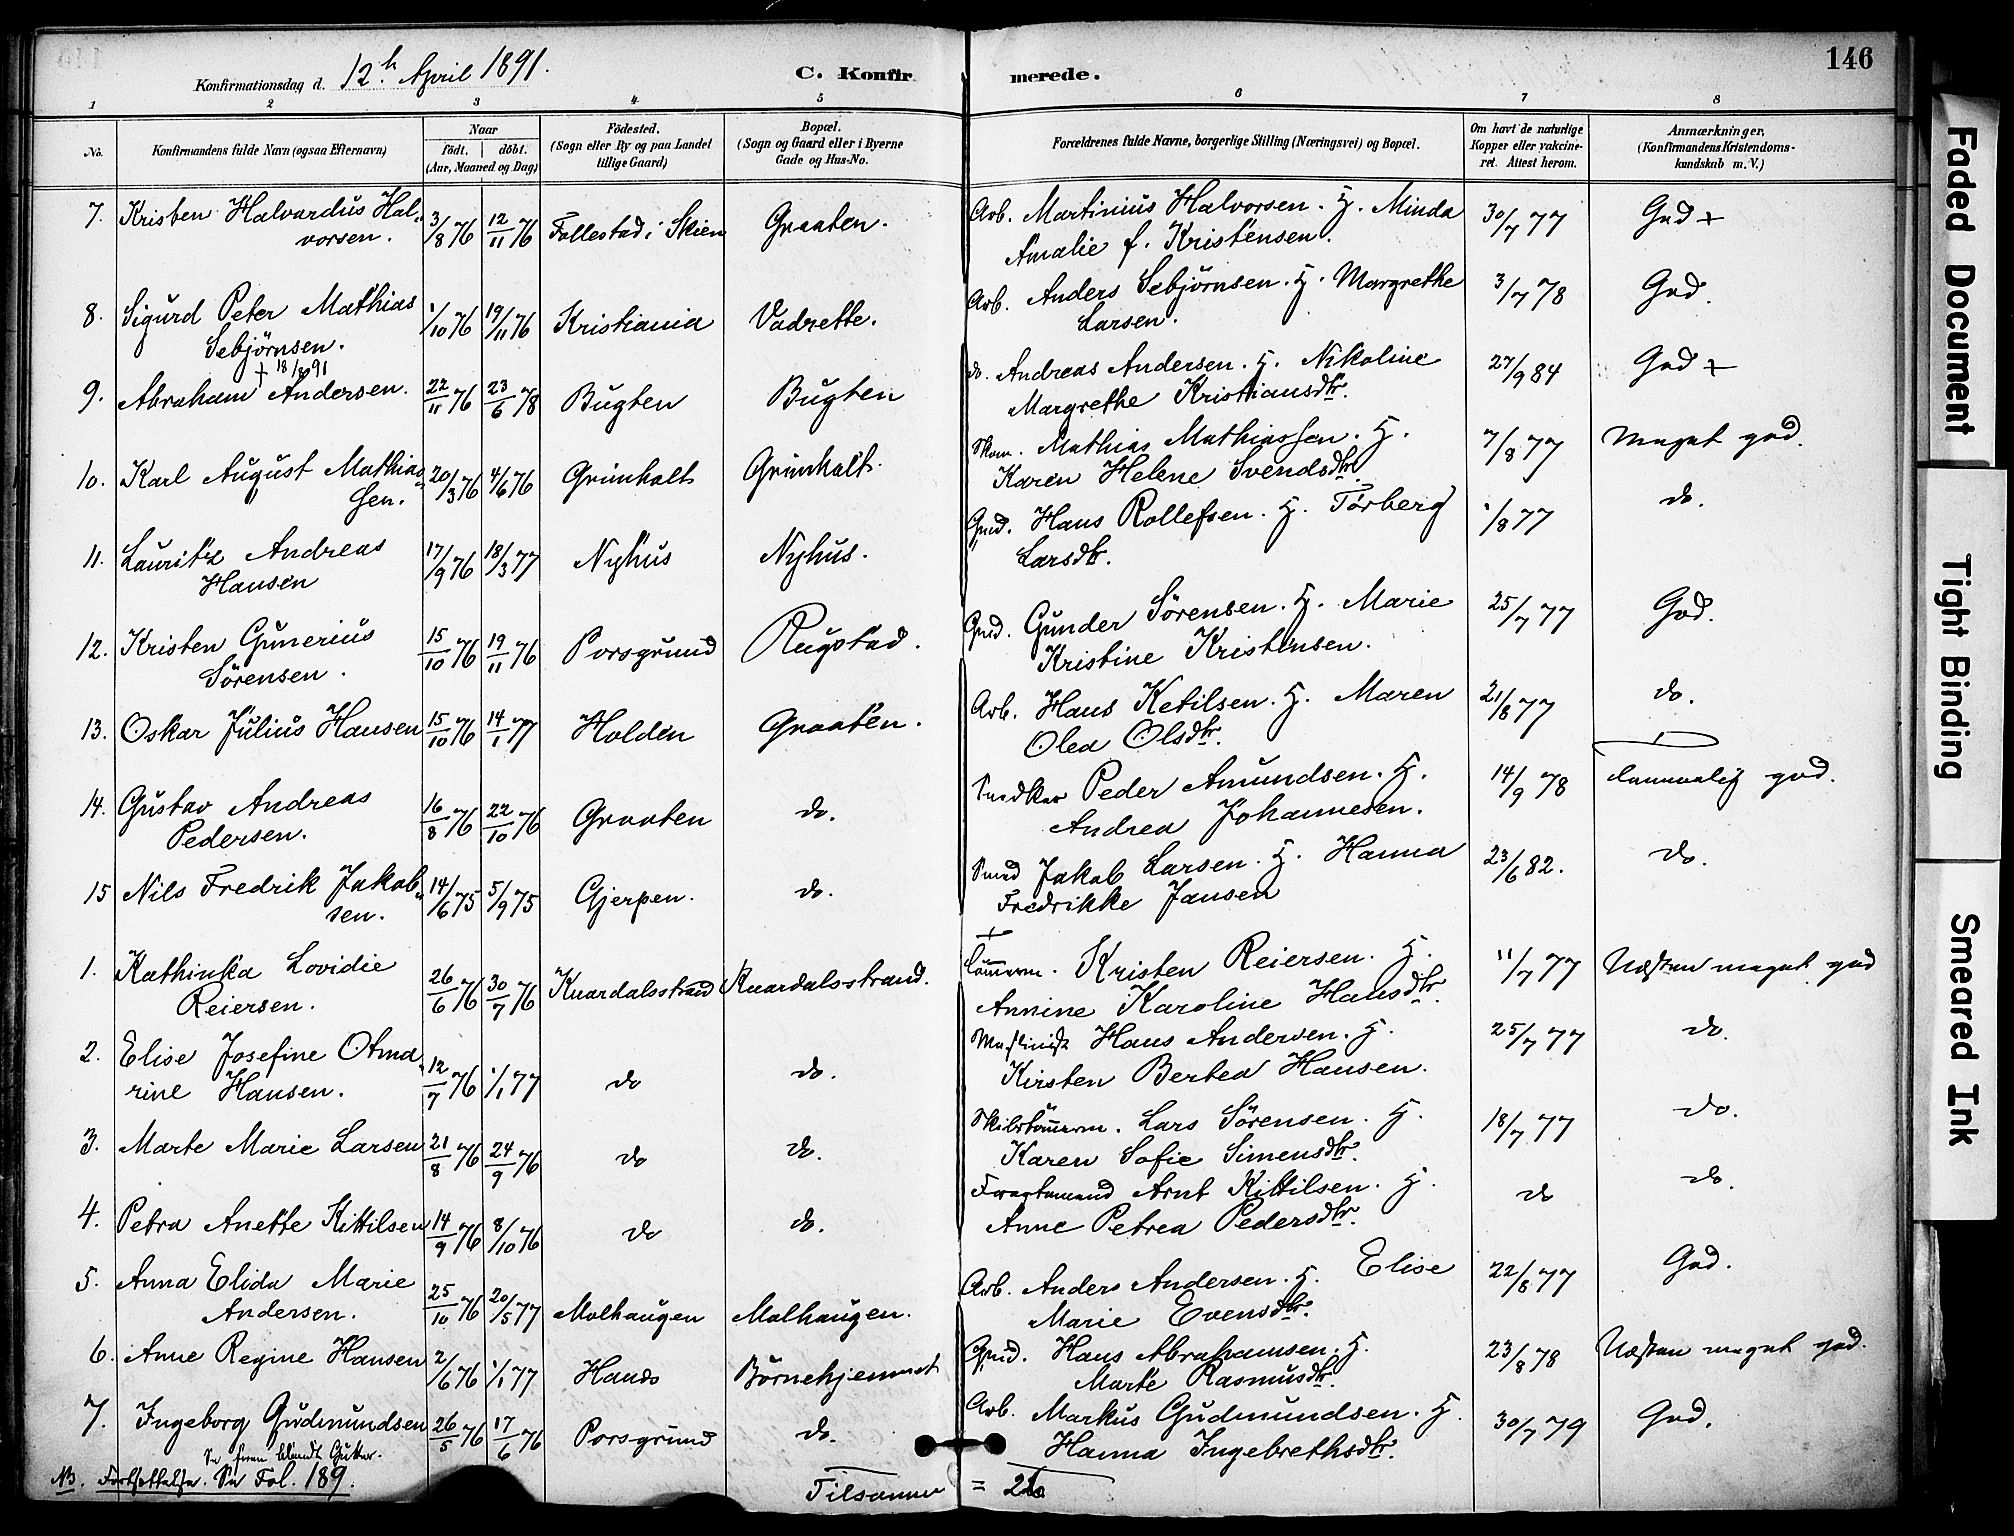 146
Konfirmationsdag d. 12h April 1891.
C. Konfirmerede.
1 2 3 4 5 6 7 8
No.
Konfirmandens fulde Navn (ogsaa Efternavn)
Naar
födt. döbt.
(Aar, Maaned og Dag)
Födested.
(Sogn eller By og paa Landet
tillige Gaard)
Bopæl.
(Sogn og Gaard eller i Byerne
Gade og Hus-No.
Forældrenes fulde Navne, borgerlige Stilling (Næringsvei) og Bopæl.
Om havt de naturlige
Kopper eller vakcine-
ret. Attest herom.
Anmærkninger,
(Konfirmandens Kristendoms-
kundskab m. V.)
7. Kristen Halvardus Hal- 3/8 76 12/11 76 Follestad i Skien Graaten. Arb. Martinius Halvorsen. H. Minda 30/7 77 God +
vorsen. Amalie f. Kristensen.
8. Sigurd Peter Mathias 1/10 76 19/11 76 Kristiania Vadrette. Arb. Anders Sebjørnsen. H. Margrethe 3/7 78 God.
Sebjørnsen. Larsen.
+ 18/8 91
9. Abraham Andersen. 22/11 76 23/6 78 Bugten Bugten do. Andreas Andersen. H. Nikoline 27/9 84 God +
Margrethe Kristiansdtr.
10. Karl August Mathias 20/3 76 4/6 76 Grimholt Grimholt. Skom. Mathias Mathiassen. H. 7/8 77 Meget god.
sen. Karen Helene Svendsdtr.
11. Lauritz Andreas 17/9 76 18/3 77 Nyhus Nyhus. Gmd. Hans Rollefsen. H. Torberg 1/8 77 do.
Hansen Larsdtr.
12. Kristen Gunerius 15/10 76 19/11 76 Porsgrund Rugstad. Gmd. Gunder Sörensen. H. Marie 25/7 77 God.
Sörensen. Kristine Kristensen.
13. Oskar Julius Hansen 15/10 76 14/1 77 Holden Graaten. Arb. Hans Ketilsen. H. Maren 21/8 77 do.
Olea Olsdtr.
14. Gustav Andreas 16/8 76 22/10 76 Graaten do. Snedker Peder Amundsen. H. 14/9 78 Temmelig god.
Pedersen. Andrea Johannesen.
15 Nils Fredrik Jakob 14/6 75 5/9 75 Gjerpen. do. Smed Jakob Larsen. H. Hanna 23/6 82. do.
sen. Fredrikke Jansen
1. Kathinka Lovidie 26/6 76 30/7 76 Knardalsstrand Knardalsstrand. Tömmerm. Kristen Reiersen. H. 11/7 77 Næsten meget god
Reiersen. Annine Karoline Hansdtr.
2. Elise Josefine Otma 12/7 76 1/1 77 do do. Maskinist Hans Andersen. H. 25/7 77 do.
rine Hansen. Kirsten Bertea Hansen.
3. Marte Marie Larsen 21/8 76 24/9 76 do do. Skibstömmerm. Lars Sörensen. H. 18/7 77 do.
Karen Sofie Simensdtr.
4. Petra Anette Kittilsen 14/9 76 8/10 76 do do. Fragtemand Arnt Kittilsen. H. do do.
Anne Petrea Pedersdtr.
5. Anna Elida Marie 25/10 76 20/5 77 Molhaugen Molhaugen. Arb. Anders Andersen. H. Elise 22/8 77 God.
Andersen. Marie Evensdtr.
6. Anne Regine Hansen 2/6 76 1/1 77 Hauds Börnehjemmet Gmd. Hans Abrahamsen. H. 23/8 78 Næsten meget god.
Marte Rasmusdtr.
7. Ingeborg Gudmundsen 26/5 76 17/6 76 Porsgrund do. Arb. Markus Gudmundsen. H. 30/7 79 God.
Se foran blandt Gutter. Hanna Ingebrethsdtr.
NB. Fortsættelse. Se Fol. 189. Tilsammen =
Faded Document
Tight Binding
Smeared Ink